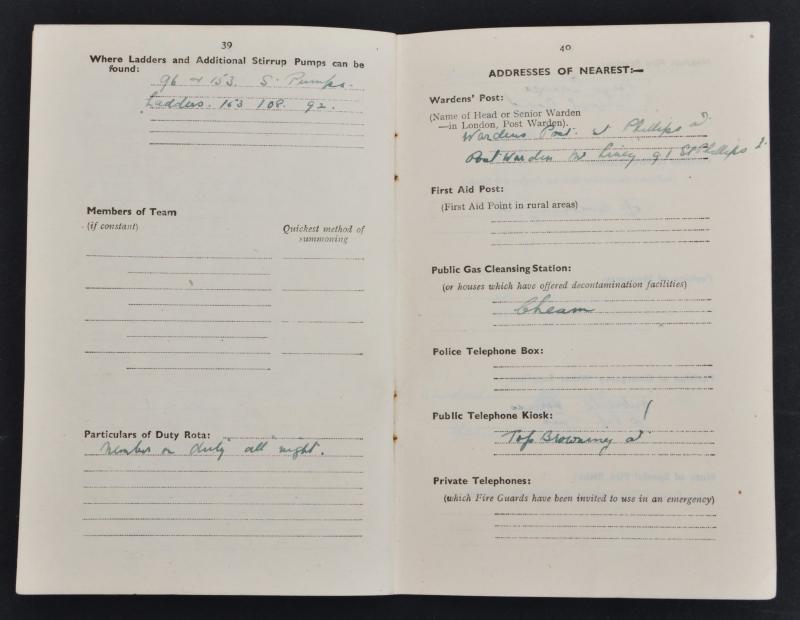 39
Where Ladders and Additional Stirrup Pumps can be
found:
96 & 153. S. Pumps.
Ladders. 163 108. 92.
Members of Team
(if constant)
Quickest method of
summoning
Particulars of Duty Rota:
Member on duty all night.
40
ADDRESSES OF NEAREST:—
Wardens' Post:
(Name of Head or Senior Warden
—in London, Post Warden).
Wardens Post. Phillips
Post Warden Mr 91 St Phillips
First Aid Post:
(First Aid Point in rural areas)
Public Gas Cleansing Station:
(or houses which have offered decontamination facilities)
Cheam
Police Telephone Box:
Public Telephone Kiosk:
Top Browning
Private Telephones:
(which Fire Guards have been invited to use in an emergency)